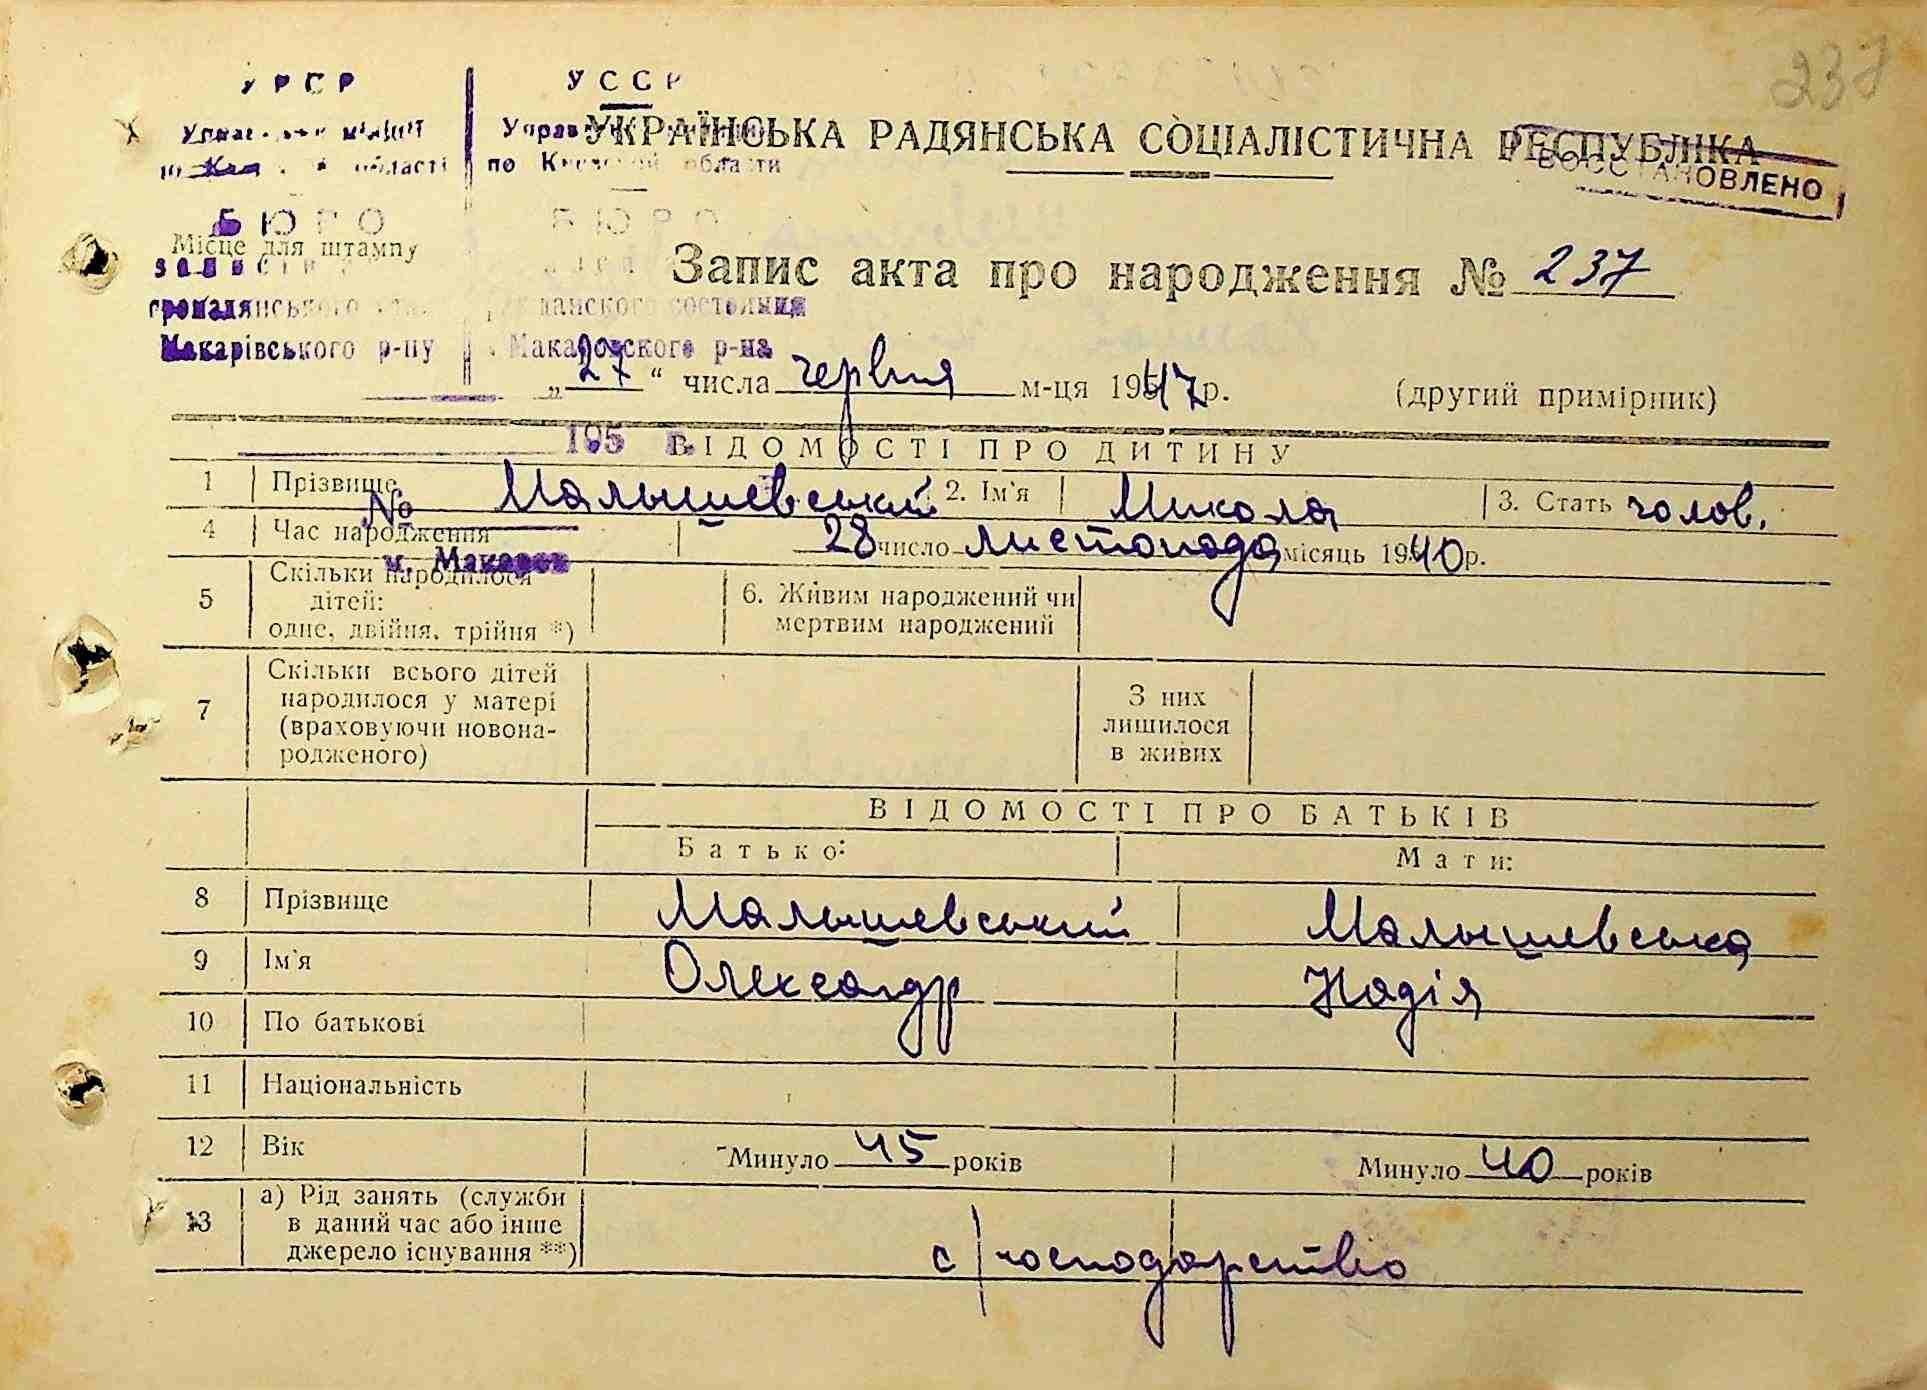 237
УРСР
УССР
УКРАЇНСЬКА РАДЯНСЬКА СОЦІАЛІСТИЧНА РЕСПУБЛІКА
області
по Киевской области
ВОССТАНОВЛЕНО
БЮРО
БЮРО
Місце для штампу
Запис акта про народження № 237
громадянського
гражданского состояния
Макарівського р-ну
Макаровского р-на
„27“ числа червня м-ця 1947р. (другий примірник)
195
ВІДОМОСТІ ПРО ДИТИНУ
1 Прізвище Малышевський 2. Ім'я Микола 3. Стать чолов.
№
4 Час народження 28 число листопада місяць 1940р.
м. Макаров
5 Скільки народилося дітей: одне, двійня, трійня *) 6. Живим народжений чи мертвим народжений
7 Скільки всього дітей народилося у матері (враховуючи новона-родженого) З них лишилося в живих
ВІДОМОСТІ ПРО БАТЬКІВ
Батько: Мати:
8 Прізвище Малышевський Малышевська
9 Ім'я Олександр Надія
10 По батькові
11 Національність
12 Вік Минуло 45 років Минуло 40 років
13 а) Рід занять (служби в даний час або інше джерело існування **) с/господарство